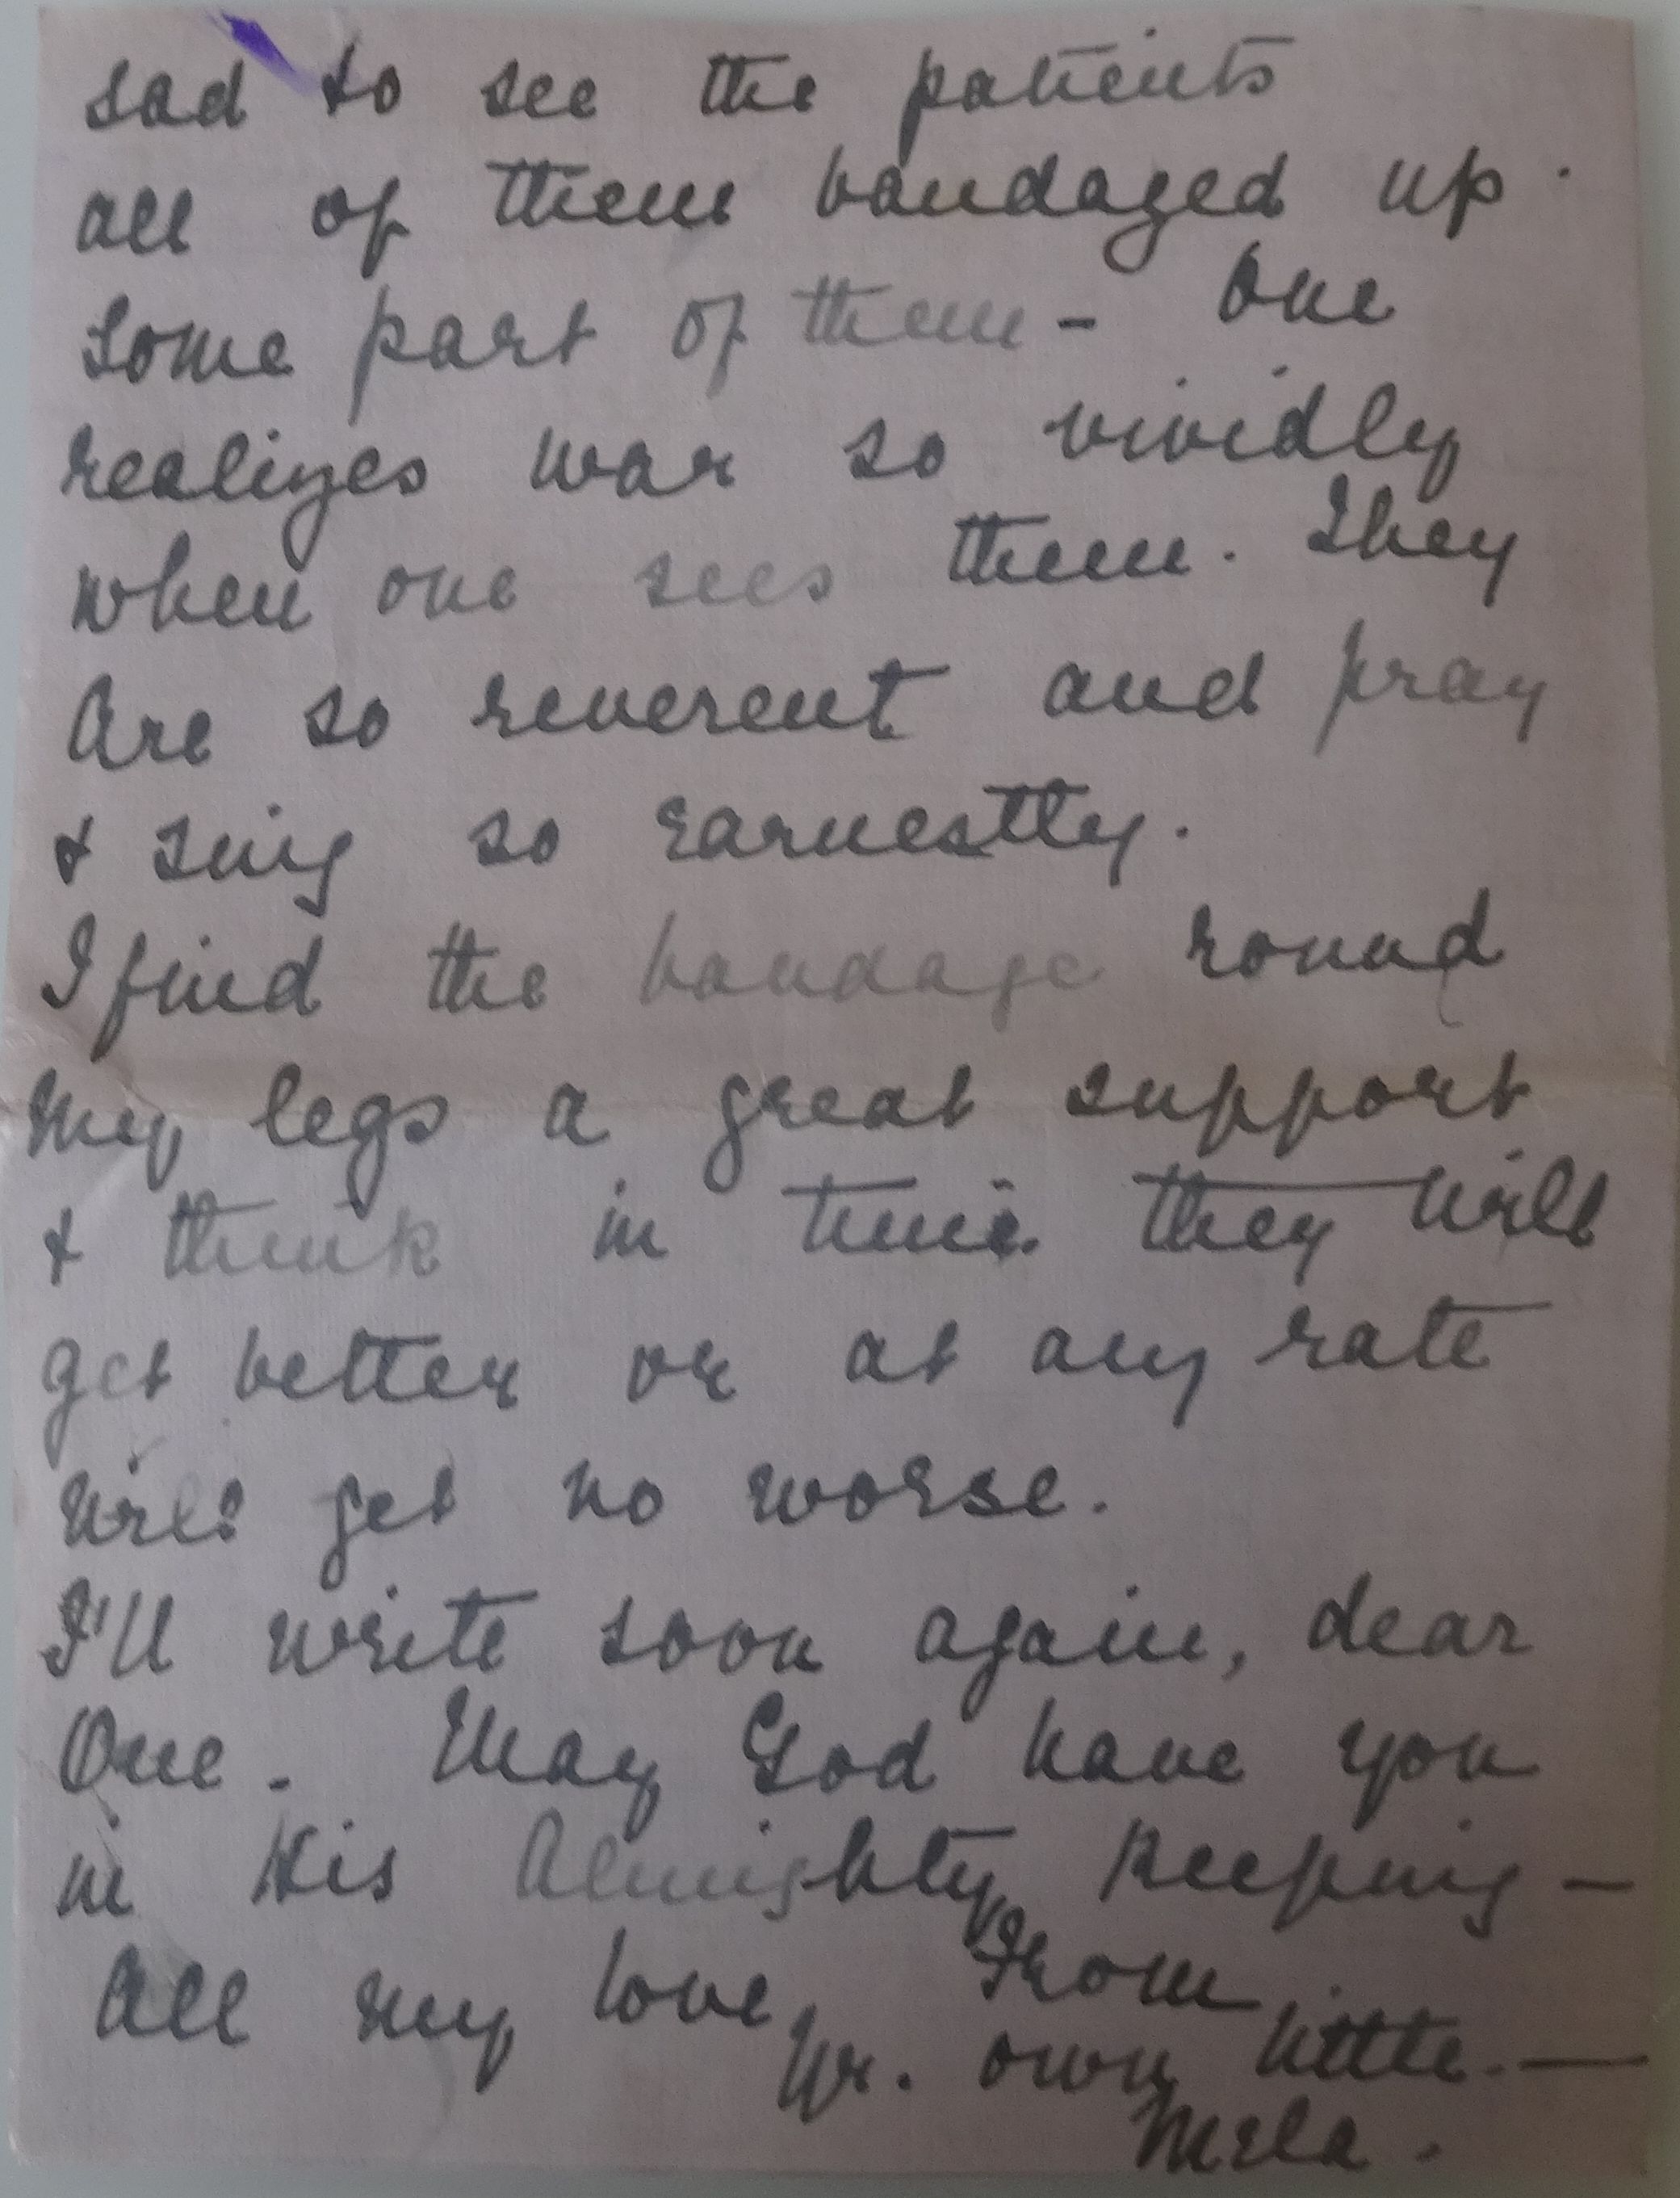 sad to see the patients
all of them bandaged up.
Some part of them - One
realizes war so vividly
when one sees them. They
Are so reverent and pray
& sing so Earnestly.
I find the bandage round
my legs a great support
& think in time they will
get better or at any rate
will get no worse.
I'll write soon again, dear
One. May God have you
in His Almighty Keeping -
All my love, From
Yr. own little. —